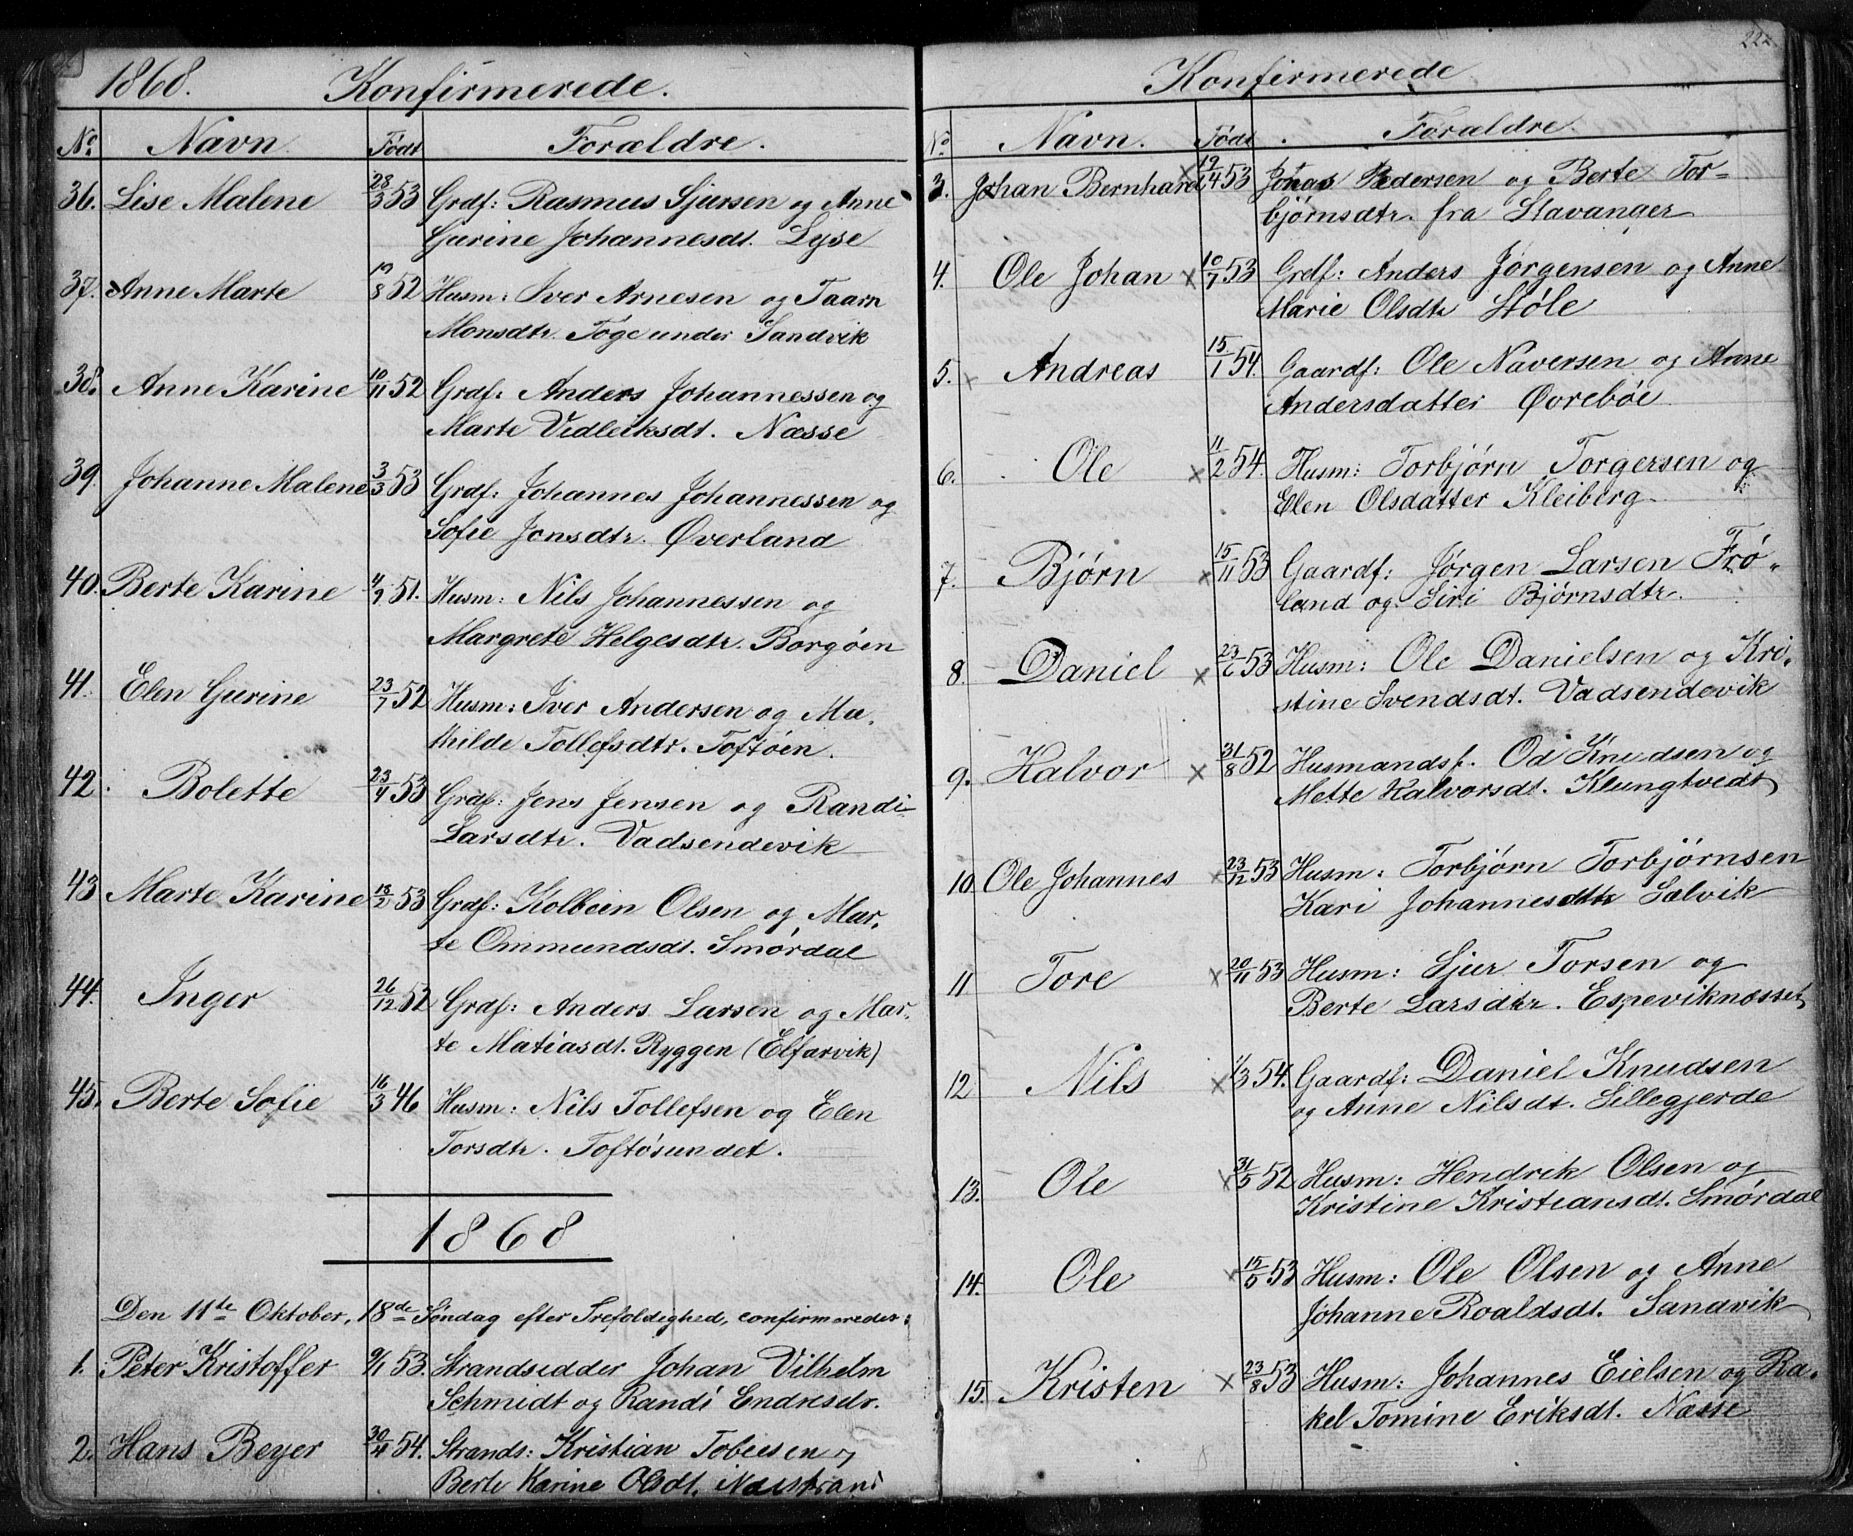 1868. Konfirmerede.
No. Navn. Født Forældre.
36. Lise Malene 28/3 53 Grdf: Rasmus Sjursen og Anne
Gurine Johannesdt. Lyse
37. Anne Marte 19/8 52 Husm: Iver Arnesen og Taarn
Monsdtr. Töge under Sandvik
38. Anne Karine 10/11 52 Grdf: Anders Johannessen og
Marte Vidleiksdt. Næsse
39. Johanne Malene 3/3 53 Grdf: Johannes Johannessen og
Sofie Jonsdtr. Øverland
40. Berte Karine 4/9 51. Husm: Nils Johannessen og
Margrete Helgesdtr. Borgøen
41. Elen Gurine 23/7 52 Husm: Iver Andersen og Ma-
thilde Tollefsdtr. Toftøen.
42. Bolette 23/4 53 Grdf: Jens Jensen og Randi
Larsdtr. Vadsendevik
43 Marte Karine 18/2 53 Grdf: Kolbein Olsen og Mar-
te Ommundsdt. Smørdal
44. Inger 26/12 52 Grdf: Anders Larsen og Mar-
te Matiasdt. Ryggen (Elfarvik)
45. Berte Sofie 16/3 46 Husm: Nils Tollefsen og Elen
Torsdtr. Toftøsundet.
1868
Den 11te Oktober, 18de Søndag efter Trefoldighed, confirmeredes:
1. Peter Kristoffer 9/1 53. Strandsidder Johan Vilhelm
Schmidt og Randi Endresdr.
2. Hans Beyer 30/4 54. Strands: Kristian Tobiesen og
Berte Karine Olsdt. Næstrand
222.
Konfirmerede
No Navn. Født Forældre.
3. Johan Bernhard × 19/4 53 Jonas Pedersen og Berte Tor-
bjørnsdtr. fra Stavanger
4. Ole Johan × 10/7 53 Grdf: Anders Jørgensen og Anne
Marie Olsdtr Støle
5. × Andreas 15/1 54. Gaardf: Ole Naversen og Anne
Andersdatter Øvrebøe
6. Ole × 11/2 54. Husm: Torbjørn Torgersen og
Elen Olsdatter Kleiberg
7. Bjørn × 15/11 53 Gaardf: Jørgen Larsen Frø-
land og Siri Bjørnsdtr.
8. Daniel × 23/6 53 Husm: Ole Danielsen og Kri-
stine Svendsdt. Vadsendevik
9. Halvor × 31/8 52 Husmandsf. Od Knudsen og
Mette Halvorsdt. Klungtvedt
10. Ole Johannes × 23/12 53 Husm: Torbjørn Torbjørnsen
Kari Johannesdtr Sælvik
11 Tore × 20/11 53 Husm: Sjur Torsen og
Berte Larsdtr. Espeviknæsset
12 Nils × 1/3 54. Gaardf: Daniel Knudsen
og Anne Nilsdt. Lillegjerde
13. Ole × 31/5 52 Husm: Hendrik Olsen og
Kristine Kristiansdt. Smørdal
14. Ole × 15/5 53 Husm: Ole Olsen og Anne
Johanne Roaldsdt. Sandvik
15. Kristen × 23/8 53 Husm: Johannes Eielsen og Ra-
kel Tomine Eriksdt. Næsse